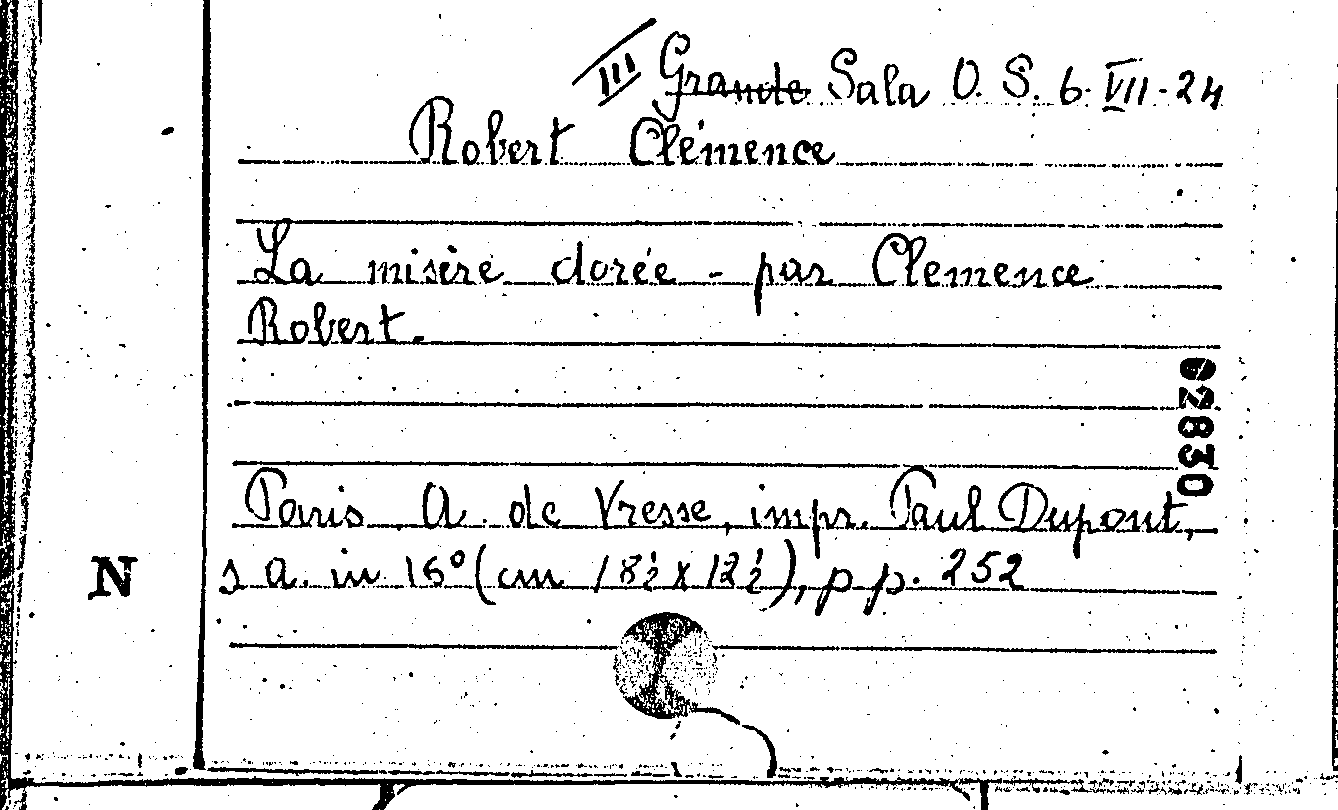 III Grande Sala O. S. 6. VII - 24
Robert Clémence
La misère dorée - par Clemence
Robert.
02830
Paris. A. de Vresse, impr. Paul Dupont,
s a. in 16° (cm 18½ x 12½), pp. 252
N